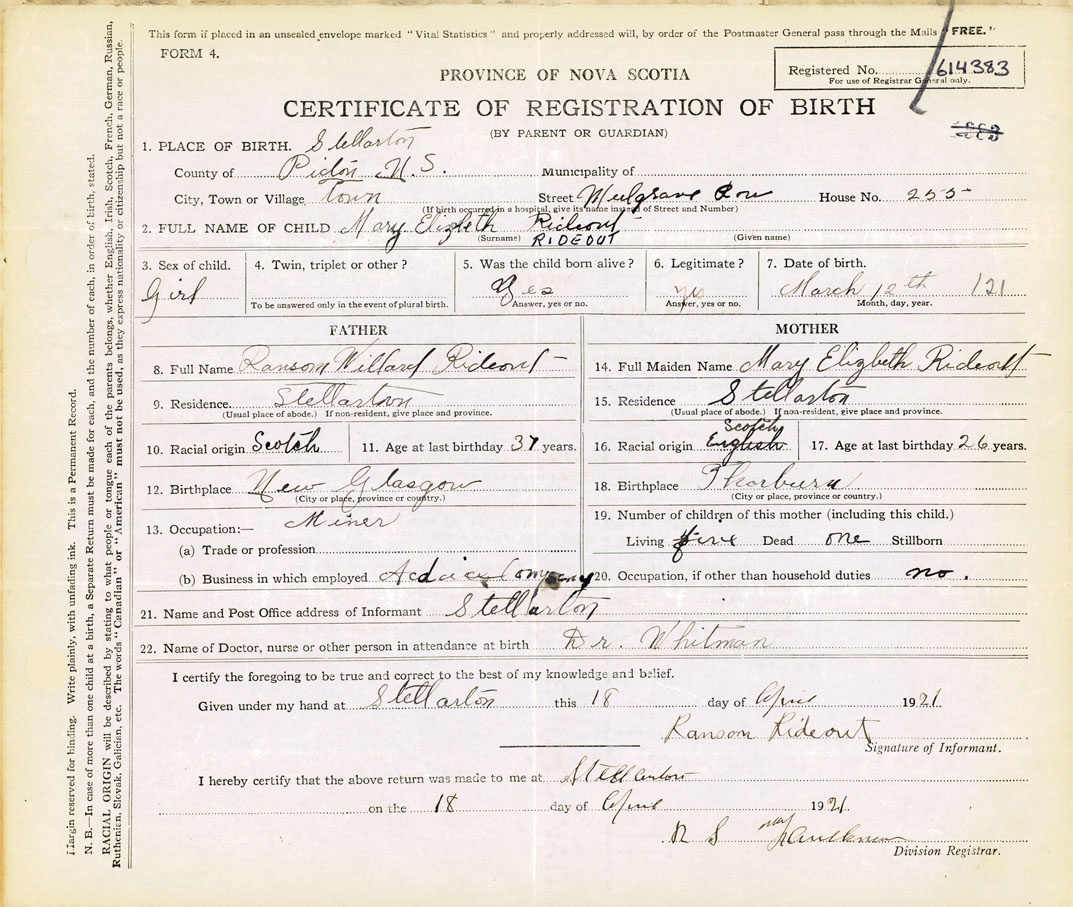 This form if placed in an unsealed envelope marked "Vital Statistics" and properly addressed will, by order of the Postmaster General pass through the Mails "FREE."
FORM 4.
Registered No. 614383
For use of Registrar General only.
PROVINCE OF NOVA SCOTIA
CERTIFICATE OF REGISTRATION OF BIRTH
(BY PARENT OR GUARDIAN)
1. PLACE OF BIRTH. Stellarton
County of Pictou N.S. Municipality of
City, Town or Village, Town Street Mulgrave Row House No. 255
(If birth occurred in a hospital, give its name instead of Street and Number)
2. FULL NAME OF CHILD Mary Elizbeth Rideout
(Surname) RIDEOUT (Given name)
3. Sex of child. 4. Twin, triplet or other? 5. Was the child born alive? 6. Legitimate? 7. Date of birth.
Girl Yes yes March 12th /21
To be answered only in the event of plural birth. Answer, yes or no. Answer, yes or no. Month, day, year.
FATHER MOTHER
8. Full Name Ransom Willard Rideout 14. Full Maiden Name Mary Elizbeth Rideout
9. Residence. Stellarton 15. Residence Stellarton
(Usual place of abode.) If non-resident, give place and province. (Usual place of abode.) If non-resident, give place and province.
Scotch
10. Racial origin Scotch 11. Age at last birthday 37 years. 16. Racial origin English 17. Age at last birthday 26 years.
12. Birthplace New Glasgow 18. Birthplace Thorburn
(City or place, province or country.) (City or place, province or country.)
13. Occupation:— Miner 19. Number of children of this mother (including this child.)
(a) Trade or profession Living five Dead one Stillborn
(b) Business in which employed Acdica Company 20. Occupation, if other than household duties no.
21. Name and Post Office address of Informant Stellarton
22. Name of Doctor, nurse or other person in attendance at birth Dr. Whitman
I certify the foregoing to be true and correct to the best of my knowledge and belief.
Given under my hand at Stellarton this 18 day of April 1921.
Ransom Rideout
Signature of Informant.
I hereby certify that the above return was made to me at Stellarton
on the 18 day of April 1921.
R S Faulkner
Division Registrar.
Margin reserved for binding. Write plainly, with unfading ink. This is a Permanent Record.
N. B.—In case of more than one child at a birth, a Separate Return must be made for each, and the number of each, in order of birth, stated.
RACIAL ORIGIN will be described by stating to what people or tongue each of the parents belongs, whether English, Irish, Scotch, French, German, Russian,
Ruthenian, Slovak, Galician, etc. The words "Canadian" or "American" must not be used, as they express nationality or citizenship but not a race or people.